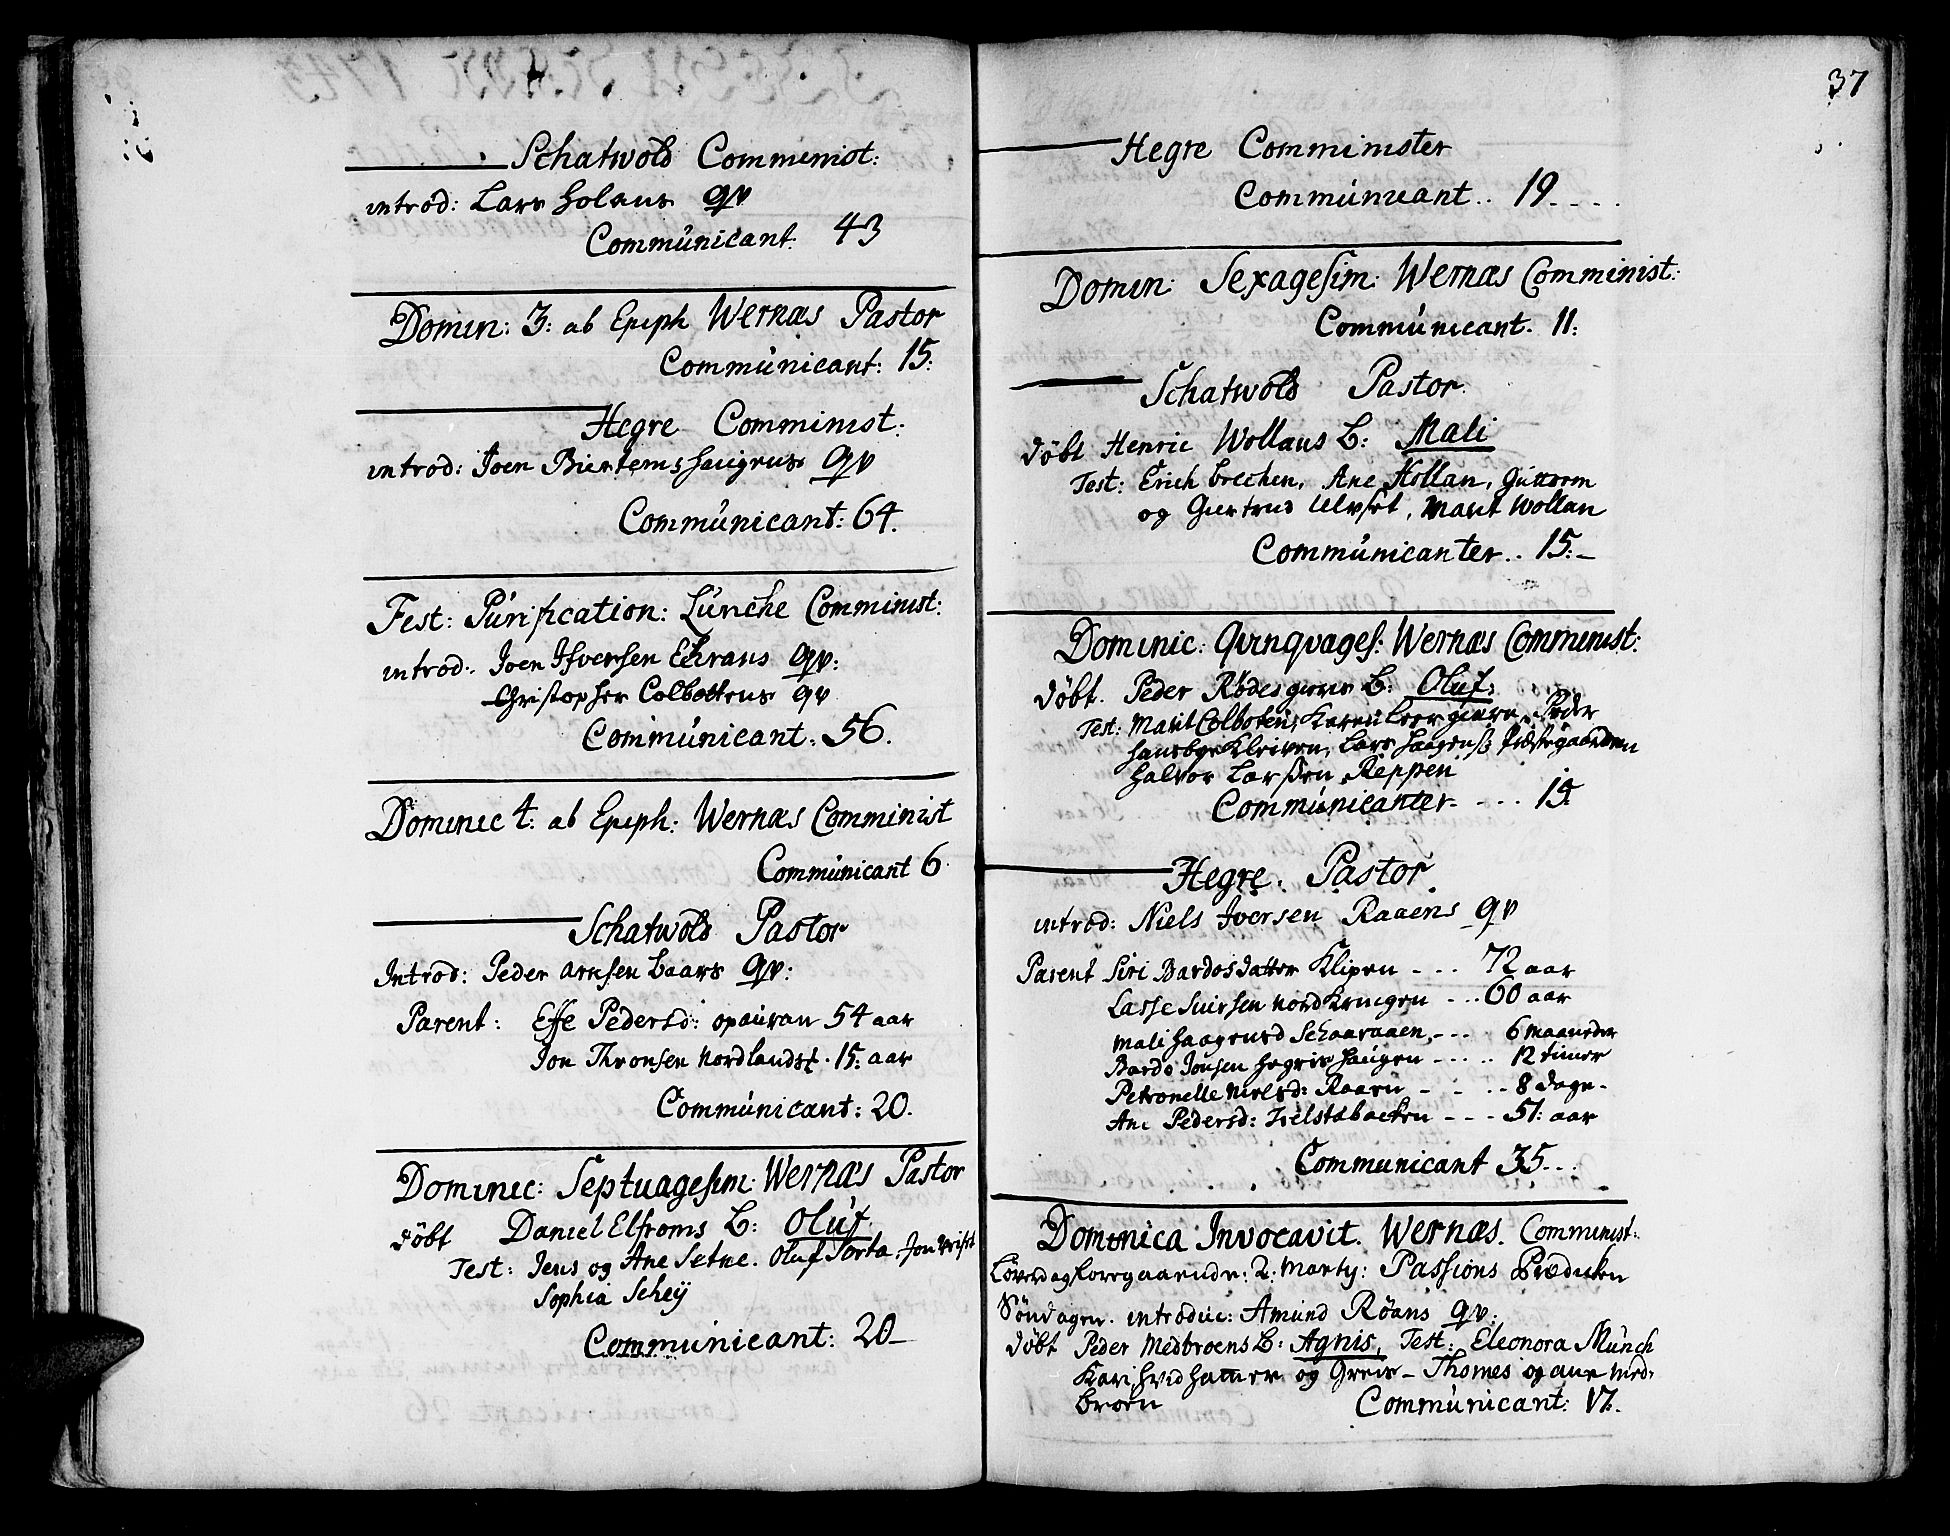 Schatwold Comminist:
introd: Lars Holans qv
Communicant. 43
Domin: 3: ab Epiph Wernæs Pastor
Communicant: 15:
Hegre Comminist:
introd: Joen Biertemshaugens qv
Communicant: 64.
Fest: Purification: Lunche Comminist:
introd: Joen Ifversen Ekrans qv:
Christopher Colbottens qv
Communicant: 56.
Dominic 4: ab Epiph: Wernæs Comminist
Communicant 6.
Schatwold Pastor
Introd: Peder Arnsen Baars qv:
Parent: Effe Pedersd: opauran 54 aar
Jon Thronsen Nordlandst. 15: aar
Communicant: 20.
Dominic: Septuagesim: Wernæs Pastor
døbt Daniel Elfroms B: Oluf.
Test: Jens og Ane Setne. Oluf Jorta. Jon
Sophia Scheÿ
Communicant: 20_
37
Hegre Comminister
Communicant.. 19....
Domin: Sexagesim: Wernæs Comminist:
Communicant. 11:
Schatwold Pastor.
døbt Henric Wollans B: Mali
Test: Erich Brechen, Ane Hollan, Guttorm
og Giertrud Ulvset, Marit Wollan
Communicanter.. 15:_
Dominic: Qvinqvages: Wernæs Comminist:
døbt. Peder Rødesgiers B: Oluf:
Test: Marit Colboten, Karen Leergiern, Peder
Kleiven, Lars Haagens: Præstegaarden
Halvor Larssen Reppen
Communicanter. - - - 15:
Hegre. Pastor.
introd: Niels Iversen Raaens qv
Parent Siri Bardosdatter Klipen - - - 72 aar
Lasse Siursen Nordkringen - - - 60 aar
Mali Haagensd Schaaraaen, - - - 6 maaneder
Bardo Jonsen Hegrishaugen - - - - - 12 timer
Petronelle Nielsd: Raaen - - - - 8 dage -
Ane Pedersd: Ielstabacken - - - 51: aar
Communicant 35...
Dominica Invocavit. Wernæs. Comminist:
Løverdag foregaaende: 2: Marty: Passions Prædicken
Søndagen. introduc: Amund Røans qv:
døbt Peder Medbroens B: Agnis, Test: Eleonora Munch
Kari Hvidhamer og Greis - Thomes og ane Med-
broen Communicant: 17.